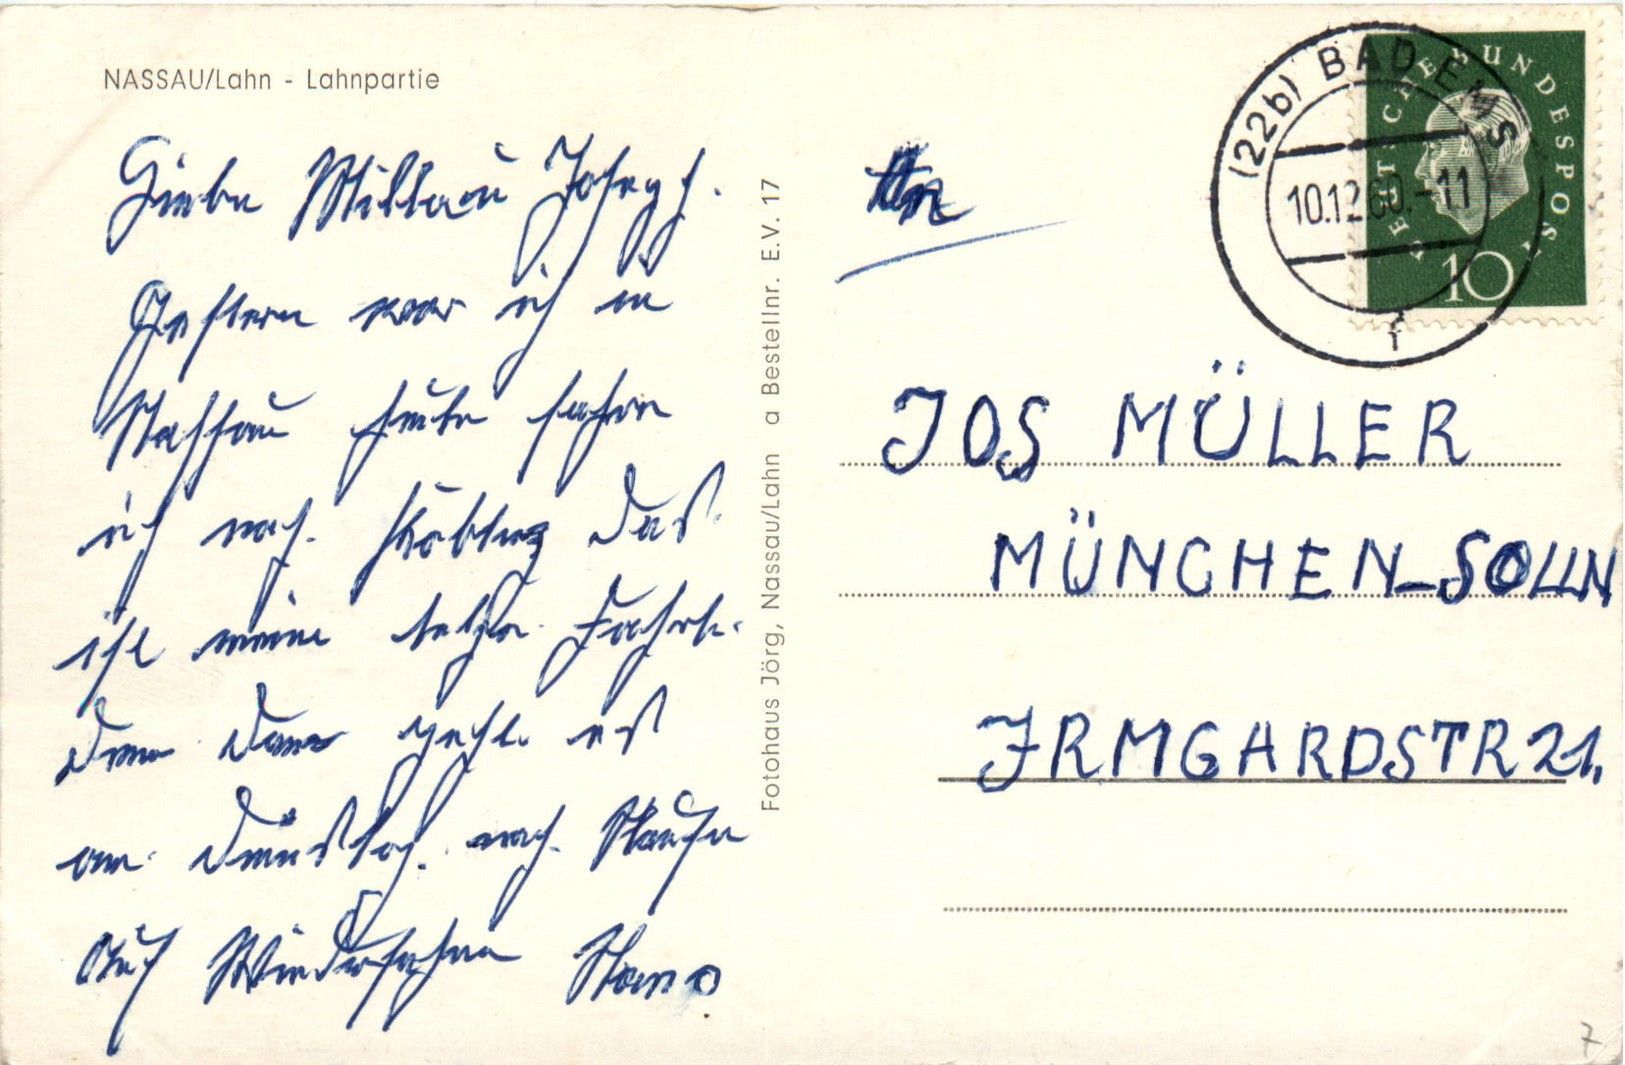 NASSAU/Lahn - Lahnpartie
Liebe Josef.
Gestern war ich in
Nassau heute fahre
ich nach. Koblenz das.
ist meine letzte. Fahrt.
denn dann geht. es
am. Dienstag. nach. Hause
Auf Wiedersehen
Fotohaus Jörg, Nassau/Lahn a Bestellnr. E.V. 17
An
(22b) BAD EMS
10.12.60.-11
f
DEUTSCHE BUNDESPOST
10
JOS MÜLLER
MÜNCHEN-SOLLN
IRMGARDSTR 21.
7